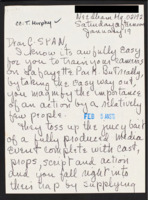 CC: T Murphy
Needham Ma 02192
Saturday afternoon
January 19
Dear C-SPAN,
I know it's awfully easy
for you to train your cameras
on Lafayette Park. But really
by taking the easy way out
you magnify the importance
of an action by a relatively
few people.
FEB 5 RECD
They toss up the juicy bait
of a fully produced media
event complete with cast,
props, script and action
and you fall right into
their trap by supplying